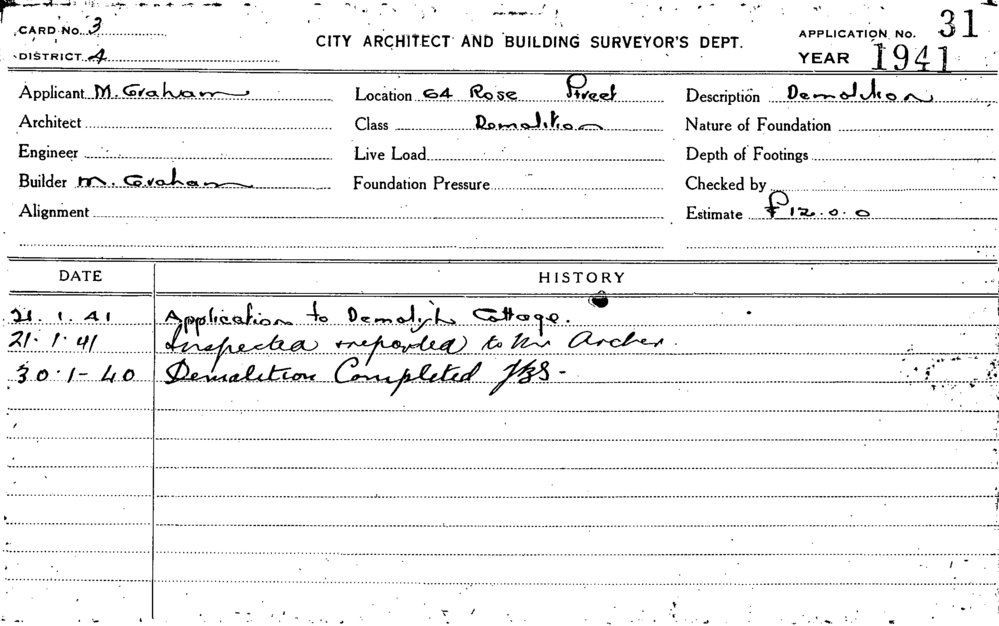 CARD No. 3
DISTRICT 4
CITY ARCHITECT AND BUILDING SURVEYOR'S DEPT.
APPLICATION No. 31
YEAR 1941
Applicant M. Graham
Location 64 Rose Street
Description Demolition
Architect
Class Demolition
Nature of Foundation
Engineer
Live Load
Depth of Footings
Builder M. Graham
Foundation Pressure
Checked by
Alignment
Estimate £12.0.0
DATE HISTORY
21.1.41 Application to Demolish Cottage.
21.1.41 Inspected & reported to Mr Archer.
30.1-40 Demolition Completed